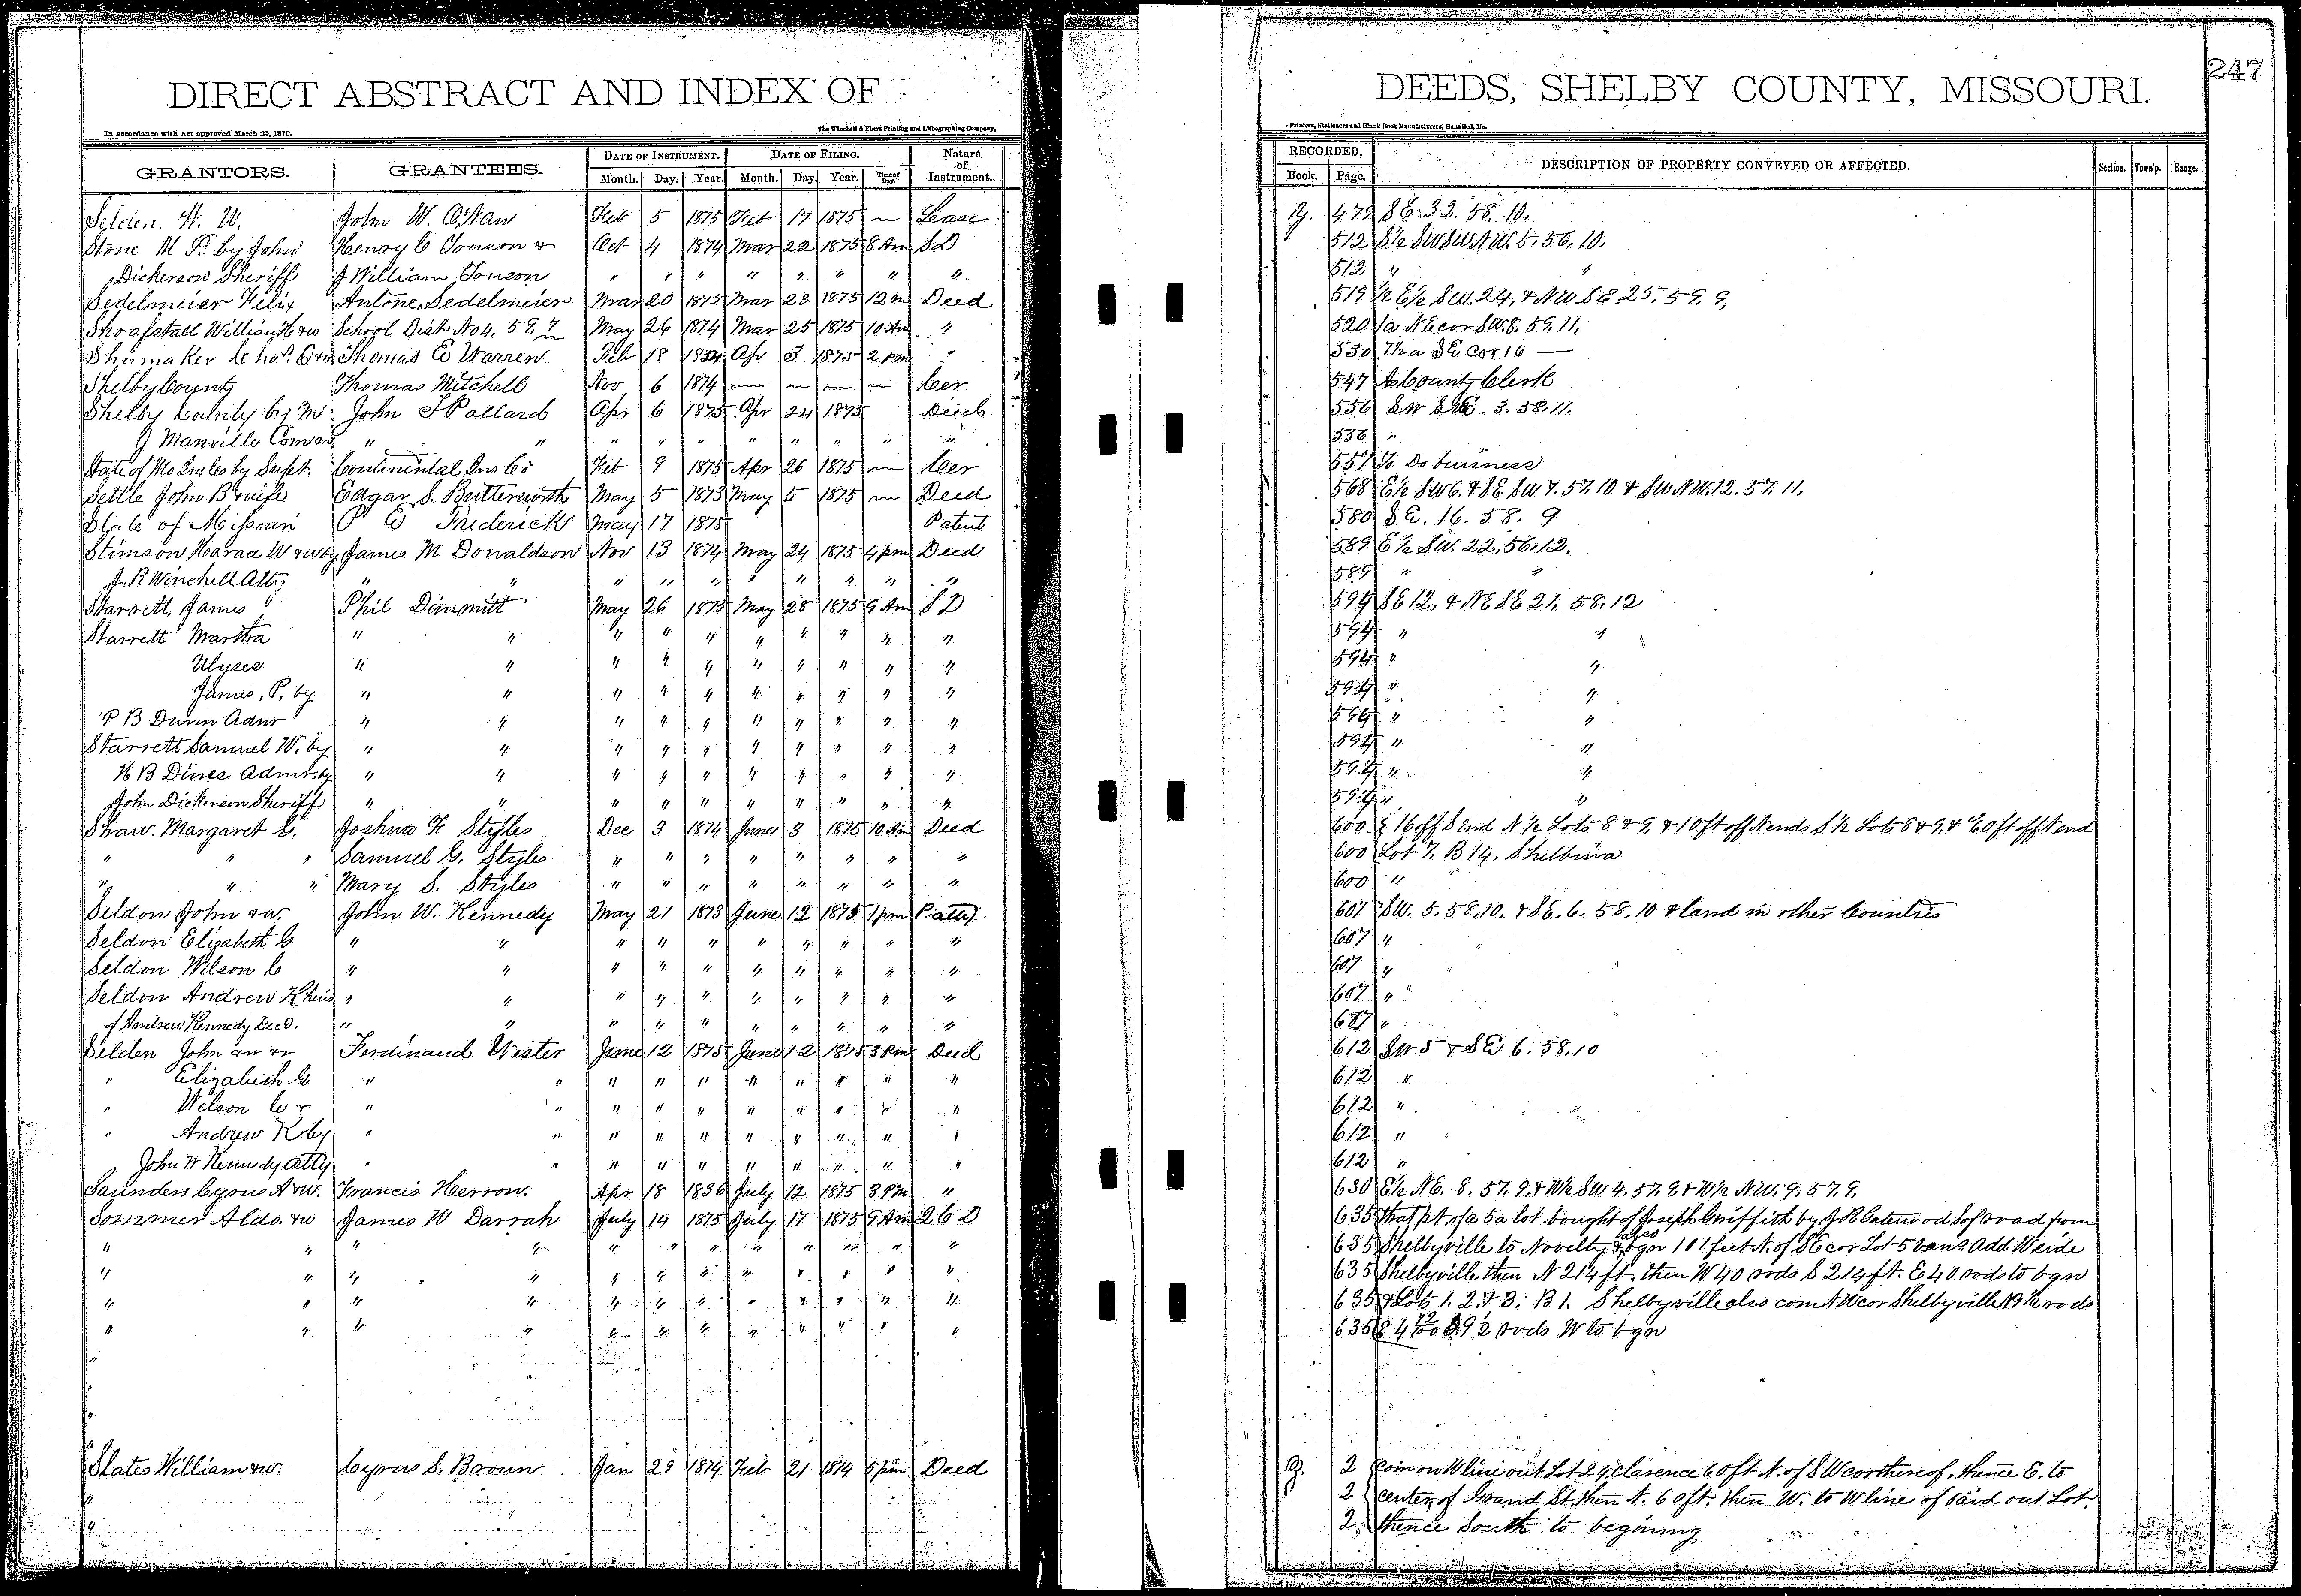 247
DIRECT ABSTRACT AND INDEX OF DEEDS, SHELBY COUNTY, MISSOURI.
In accordance with Act approved March 25, 1870. The Winchell & Ebert Printing and Lithographing Company, Printers, Stationers and Blank Book Manufacturers, Hannibal, Mo.
GRANTORS. GRANTEES. DATE OF INSTRUMENT. DATE OF FILING. Nature of Instrument. RECORDED. DESCRIPTION OF PROPERTY CONVEYED OR AFFECTED. Section. Town'p. Range.
Month. Day. Year. Month. Day. Year. Time of Day. Book. Page.
Selden H. W. John W. Feb 5 1875 Feb 17 1875 " Lease Y. 479 SE. 32. 58. 10.
Stone M P. by John Henry C Touson & Oct 4 1874 Mar 22 1875 8 Am SD 512 S½ SW SW NW. 5. 56. 10.
Dickerson Sheriff J William Touson " " " " " " " " 512 " "
Sedelmeier Felix Antone Sedelmeier Mar 20 1875 Mar 23 1875 12 m Deed 519 ½ E½ SW. 24, & NW SE 25, 59. 9,
Shoafstall William H &w School Dist No 4. 59. 7 May 26 1874 Mar 25 1875 10 Am " 520 1a NE cor SW. 8. 59. 11.
Shumaker Chas. Thomas E Warren Feb 18 Apr 3 1875 2 pm " 530 7½ a SE cor 16 —
Shelby County Thomas Mitchell Nov 6 1874 — — — — Cer 547 As County Clerk
Shelby County by M John F Pollard Apr 6 1875 Apr 24 1875 Deed 556 SW 3. 58. 11.
J Manville Comr " " " " " " " " " " 556 "
State of Mo Ins Co by Supt. Continental Ins Co Feb 9 1875 Apr 26 1875 — Cer 557 To Do business
Settle John B & wife Edgar S. Butterworth May 5 1873 May 5 1875 — Deed 568 E½ SW 6. & SE. SW 7. 57. 10 & SW NW. 12. 57. 11.
State of Missouri P E Frederick May 17 1875 Patent 580 SE. 16. 58. 9
Stimson Harace W &w by James M Donaldson Nov 13 1874 May 24 1875 4 pm Deed 589 E½ SW. 22, 56. 12.
J. R Winchell Atty " " " " " " " " " 589 " "
Starrett, James Phil Dimmitt May 26 1875 May 28 1875 9 Am SD 594 SE 12, & NE SE 21, 58, 12
Starrett Martha " " " " " " " " " " 594 " "
Ulyses " " " " " " " " " " 594 " "
James, P, by " " " " " " " " " " 594 " "
P B Dunn Admr " " " " " " " " " " 594 " "
Starrett Samuel W. by " " " " " " " " " " 594 " "
H B Dines Admr. by " " " " " " " " " " 594 " "
John Dickerson Sheriff " " " " " " " " " " 594 " "
Shaw. Margaret G. Joshua F Styles Dec 3 1874 June 3 1875 10 Am Deed 600 16 off S end N½ Lots 8 & 9, & 10 ft off N ends S½ Lots 8 & 9, & 60 ft off N end
" " " Samuel G. Styles " " " " " " " " 600 Lot 7. B 14. Shelbina
" " " Mary S. Styles " " " " " " " " 600 "
Seldon John &w. John W. Kennedy May 21 1873 June 12 1875 1 pm P. atty. 607 SW. 5. 58. 10. & SE. 6. 58. 10 & land in other Counties
Seldon Elizabeth G " " " " " " " " " " 607 "
Seldon Wilson C " " " " " " " " " " 607 "
Seldon Andrew K heirs " " " " " " " " " " 607 "
of Andrew Kennedy Decd. " " " " " " " " " " 607 "
Selden John Ferdinand Wester June 12 1875 June 12 1875 3 Pm Deed 612 SW 5 & SE 6. 58. 10
" Elizabeth G " " " " " " " " " " 612 "
" Wilson C & " " " " " " " " " " 612 "
" Andrew K by " " " " " " " " " " 612 "
John W Kennedy Atty " " " " " " " " " " 612 "
Saunders Cyrus A &w. Francis Herron. Apr 18 1836 July 12 1875 3 PM " 630 E½ NE. 8. 57. 9. & W½ SW 4. 57. 9. & W½ NW. 9. 57. 9.
Sommer Aldo. &w James W Darrah July 14 1875 July 17 1875 9 Am 2 6 D 635 That pt. of a 5a lot bought of Joseph Griffith by J R Gatewood S of road from
" " " " " " " " " " " " 635 Shelbyville to Novelty, also bgn 101 feet N. of SE cor Lot 5 Vans Add W side
" " " " " " " " " " " " 635 Shelbyville then N 214 ft, then W 40 rods S 214 ft. E 40 rods to bgn
" " " " " " " " " " " " 635 & Lots 1. 2. & 3. B 1. Shelbyville also com NW cor Shelbyville N 9½ rods
" " " " " " " " " " " " 635 E. 4 72/100 S. 9½ rods W to bgn
Slates William &w. Cyrus S. Broun Jan 29 1874 Feb 21 1874 5 pm Deed 2 Com on W line out Lot 24 Clarence 60 ft N. of SW cor thereof, thence E. to
2 center of Grand St, then N. 60 ft. then W. to W line of said out Lot.
2 thence South to begining